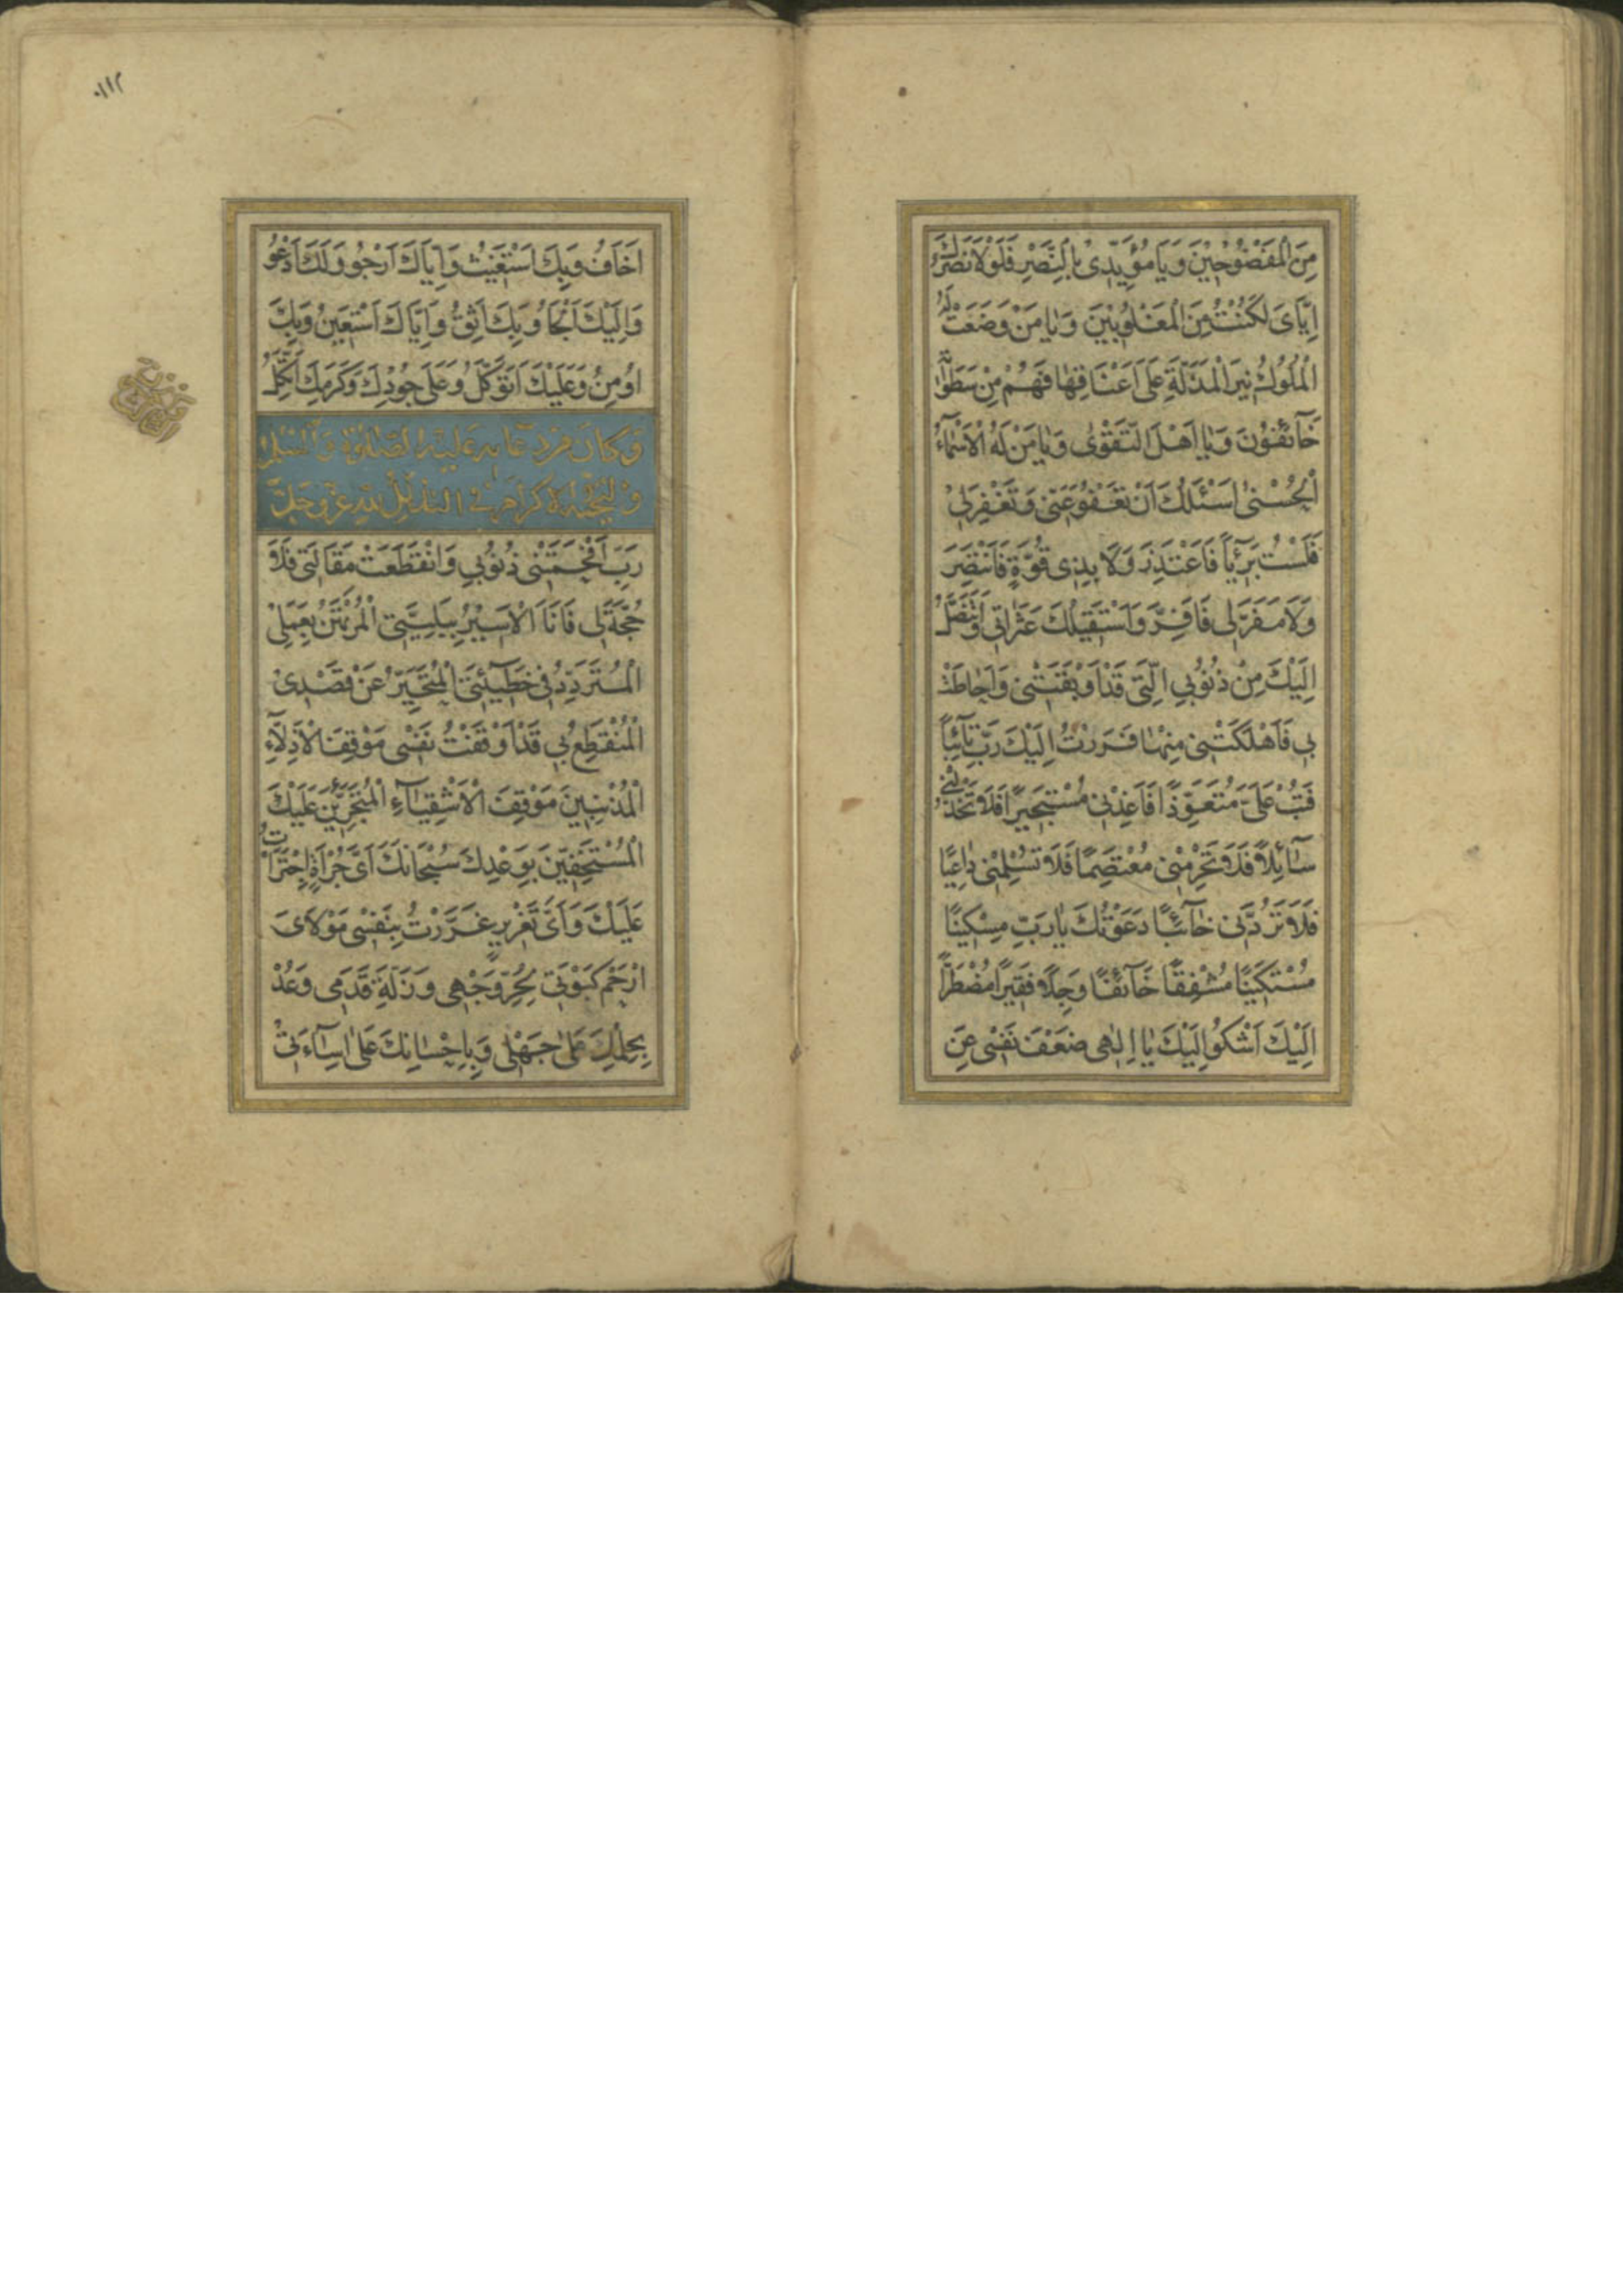 مِنَ الْمَفْضُوحِيْنَ وَيَا مُؤَيِّدِىْ بِالنَّصْرِ فَلَوْلَا نَصْرُكَ
اِيَّاىَ لَكُنْتُ مِنَ الْمَغْلُوبِيْنَ وَيَا مَنْ وَضَعَتْ لَهُ
الْمُلُوكُ نِيْرَ الْمَذَلَّةِ عَلَى اَعْنَاقِهَا فَهُمْ مِنْ سَطَوَاتِهِ
خَآئِفُوْنَ وَيَا اَهْلَ التَّقْوٰى وَيَا مَنْ لَهُ الْاَسْمَآءُ
الْحُسْنٰى اَسْئَلُكَ اَنْ تَعْفُوَ عَنِّى وَتَغْفِرَ لِىْ
فَلَسْتُ بَرِيْئًا فَاَعْتَذِرَ وَلَا بِذِى قُوَّةٍ فَاَنْتَصِرَ
وَلَا مَفَرَّ لِى فَاَفِرَّ وَاَسْتَقِيْلُكَ عَثَرَاتِى وَاَتَنَصَّلُ
اِلَيْكَ مِنْ ذُنُوْبِى الَّتِى قَدْ اَوْبَقَتْنِى وَاَحَاطَتْ
بِى فَاَهْلَكَتْنِى مِنْهَا فَرَرْتُ اِلَيْكَ رَبِّ تَآئِبًا
فَتُبْ عَلَىَّ مُتَعَوِّذًا فَاَعِذْنِى مُسْتَجِيْرًا فَلَا تَخْذُلْنِى
سَآئِلًا فَلَا تَحْرِمْنِى مُعْتَصِمًا فَلَا تُسْلِمْنِى دَاعِيًا
فَلَا تَرُدَّنِى خَآئِبًا دَعَوْتُكَ يَا رَبِّ مِسْكِيْنًا
مُسْتَكِيْنًا مُشْفِقًا خَآئِفًا وَجِلًا فَقِيْرًا مُضْطَرًّا
اِلَيْكَ اَشْكُوْ اِلَيْكَ يَا اِلٰهِى ضَعْفَ نَفْسِى عَنِ
١١٢
اَخَافُ وَبِكَ اَسْتَغِيْثُ وَاِيَّاكَ اَرْجُو وَلَكَ اَدْعُوْ
وَاِلَيْكَ اَلْجَاُ وَبِكَ اَثِقُ وَاِيَّاكَ اَسْتَعِيْنُ وَبِكَ
اُوْمِنُ وَعَلَيْكَ اَتَوَكَّلُ وَعَلَى جُوْدِكَ وَكَرَمِكَ اَتَّكِلُ
وَكَانَ مِنْ دُعَآئِهِ عَلَيْهِ الصَّلٰوةُ وَالسَّلَامُ
وَالتَّحِيَّةُ وَالْاِكْرَامُ فِى التَّذَلُّلِ لِلّٰهِ عَزَّ وَجَلَّ
رَبِّ اَفْحَمَتْنِى ذُنُوْبِى وَانْقَطَعَتْ مَقَالَتِى فَلَا
حُجَّةَ لِى فَاَنَا الْاَسِيْرُ بِبَلِيَّتِى الْمُرْتَهَنُ بِعَمَلِىْ
الْمُتَرَدِّدُ فِى خَطِيْئَتِى الْمُتَحَيِّرُ عَنْ قَصْدِىْ
الْمُنْقَطِعُ بِى قَدْ اَوْقَفْتُ نَفْسِى مَوْقِفَ الْاَذِلَّآءِ
الْمُذْنِبِيْنَ مَوْقِفَ الْاَشْقِيَآءِ الْمُتَجَرِّئِيْنَ عَلَيْكَ
الْمُسْتَخِفِّيْنَ بِوَعْدِكَ سُبْحَانَكَ اَىَّ جُرْاَةٍ اجْتَرَاْتُ
عَلَيْكَ وَاَىَّ تَغْرِيرٍ غَرَّرْتُ بِنَفْسِى مَوْلَاىَ
ارْحَمْ كَبْوَتِى لِحُرِّ وَجْهِى وَزَلَّةَ قَدَمِى وَعُدْ
بِحِلْمِكَ عَلَى جَهْلِى وَبِاِحْسَانِكَ عَلَى اِسَآءَتِىْ